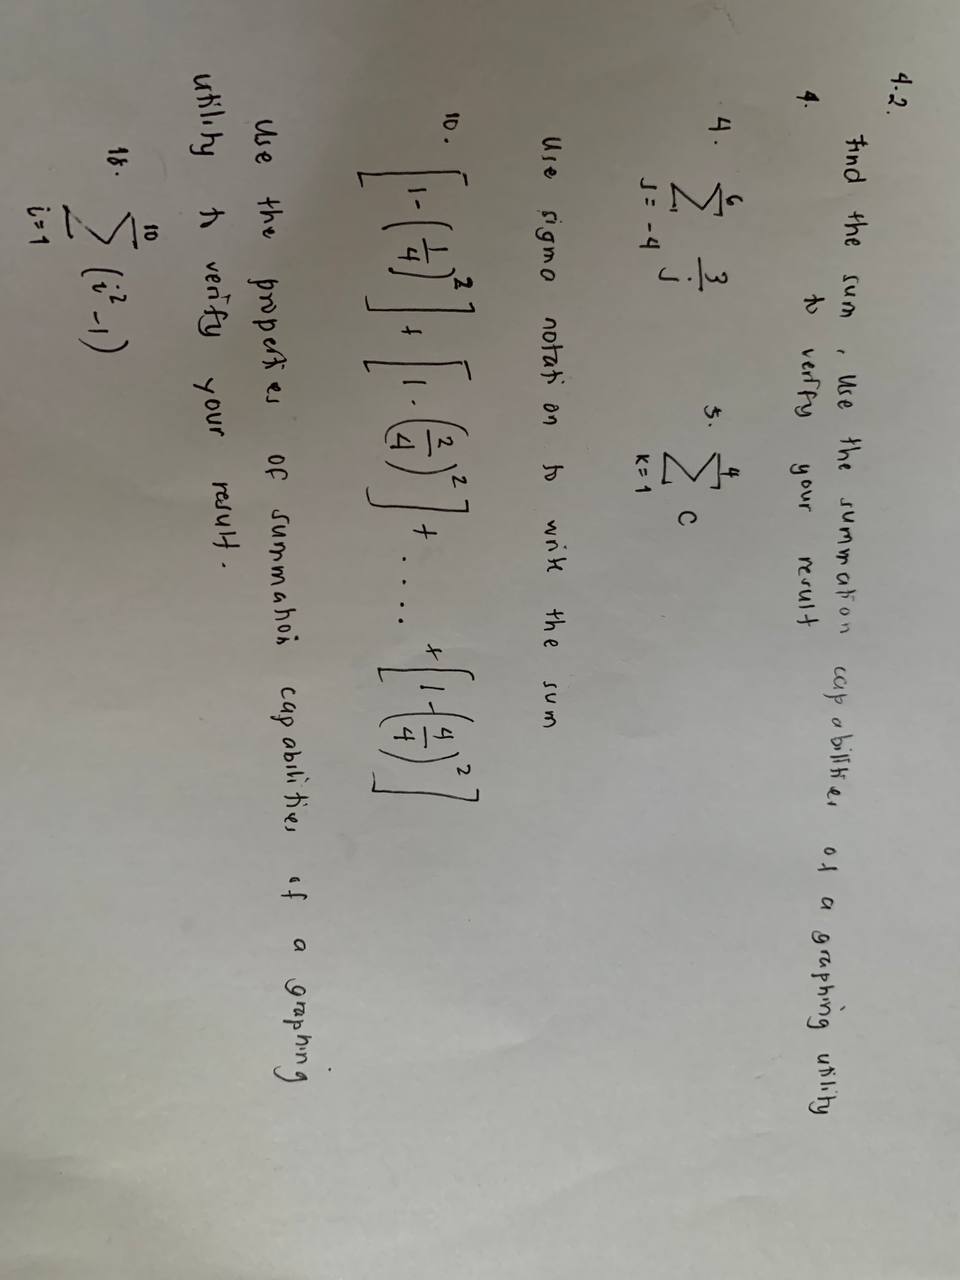 4.2.
find the sum, Use the summation capabilities of a graphing utility
4. to verify your result
4. 6 ∑ j = -4 3/j 5. 4 ∑ k=1 C
Use sigma notation to write the sum
10. [1-(1/4)²] + [1-(2/4)²] + .... + [1-(4/4)²]
Use the properties of summation capabilities of a graphing
utility to verify your result.
18. 10 ∑ i=1 (i²-1)